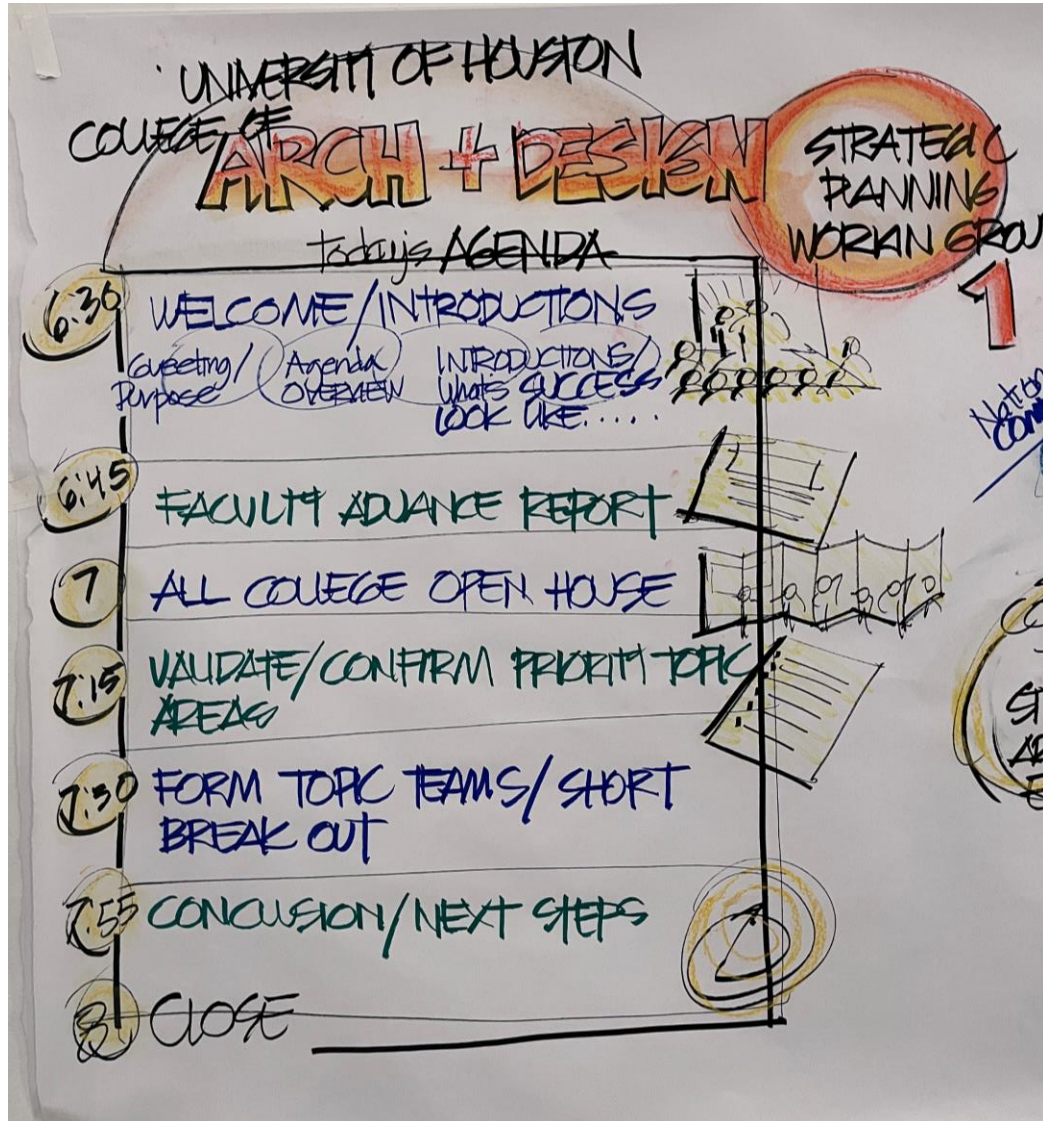 UNIVERSITY OF HOUSTON
COLLEGE OF
ARCH + DESIGN
STRATEGIC
PLANNING
WORKIN GROU
1
today's AGENDA
6:30
WELCOME/INTRODUCTIONS
Greeting/
Purpose
Agenda
OVERVIEW
INTRODUCTIONS/
What's SUCCESS
LOOK LIKE.....
6:45
FACULTY ADVANCE REPORT
7
ALL COLLEGE OPEN HOUSE
7:15
VALIDATE/CONFIRM PRIORITY TOPIC
AREAS
7:30
FORM TOPIC TEAMS/SHORT
BREAK OUT
7:55
CONCLUSION/NEXT STEPS
8
CLOSE